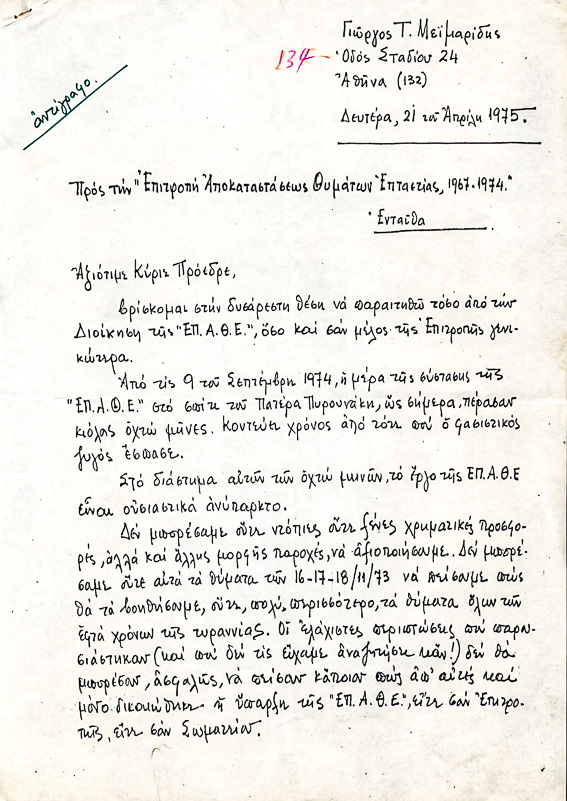 Γιῶργος Τ. Μεϊμαρίδης
134 - Ὁδός Σταδίου 24
Ἀθήνα (132)
ἀντίγραφο.
Δευτέρα, 21 τοῦ Ἀπρίλη 1975.
Πρός τήν "Ἐπιτροπή Ἀποκαταστάσεως Θυμάτων Ἑπταετίας, 1967-1974."
Ἐνταῦθα
Ἀξιότιμε Κύριε Πρόεδρε,
βρίσκομαι στήν δυσάρεστη θέση νά παραιτηθῶ τόσο ἀπό τήν
Διοίκηση τῆς "ΕΠ.Α.Θ.Ε.", ὅσο καί σάν μέλος τῆς Ἐπιτροπῆς γενι-
κώτερα.
Ἀπό τίς 9 τοῦ Σεπτέμβρη 1974, ἡ μέρα τῆς σύστασης τῆς
"ΕΠ.Α.Θ.Ε." στό σπίτι τοῦ Πατέρα Πυρουνάκη, ὥς σήμερα, πέρασαν
κιόλας ὀχτώ μῆνες. Κοντεύει χρόνος ἀπό τότε πού ὁ φασιστικός
ζυγός ἔσπασε.
Στό διάστημα αὐτῶν τῶν ὀχτώ μηνῶν, τό ἔργο τῆς ΕΠ.Α.Θ.Ε
εἶναι οὐσιαστικά ἀνύπαρκτο.
Δέν μπορέσαμε οὔτε ντόπιες οὔτε ξένες χρηματικές προσφο-
ρές, ἀλλά καί ἄλλης μορφῆς παροχές, νά ἀξιοποιήσουμε. Δέν μπορέ-
σαμε οὔτε αὐτά τά θύματα τῶν 16-17-18/11/73 νά πείσουμε πώς
θά τά βοηθήσουμε, οὔτε, πολύ περισσότερο, τά θύματα ὅλων τῶν
ἑφτά χρόνων τῆς τυραννίας. Οἱ ἐλάχιστες περιπτώσεις πού παρου-
σιάστηκαν (καί πού δέν τίς εἴχαμε ἀναζητήσει κἄν!) δέν θά
μποροῦσαν, ἀσφαλῶς, νά πείσουν κάποιον πώς ἀπ' αὐτές καί
μόνο δικαιώθηκε ἡ ὕπαρξη τῆς "ΕΠ.Α.Θ.Ε.", εἴτε σάν Ἐπιτρο-
πῆς, εἴτε σάν Σωματείου.